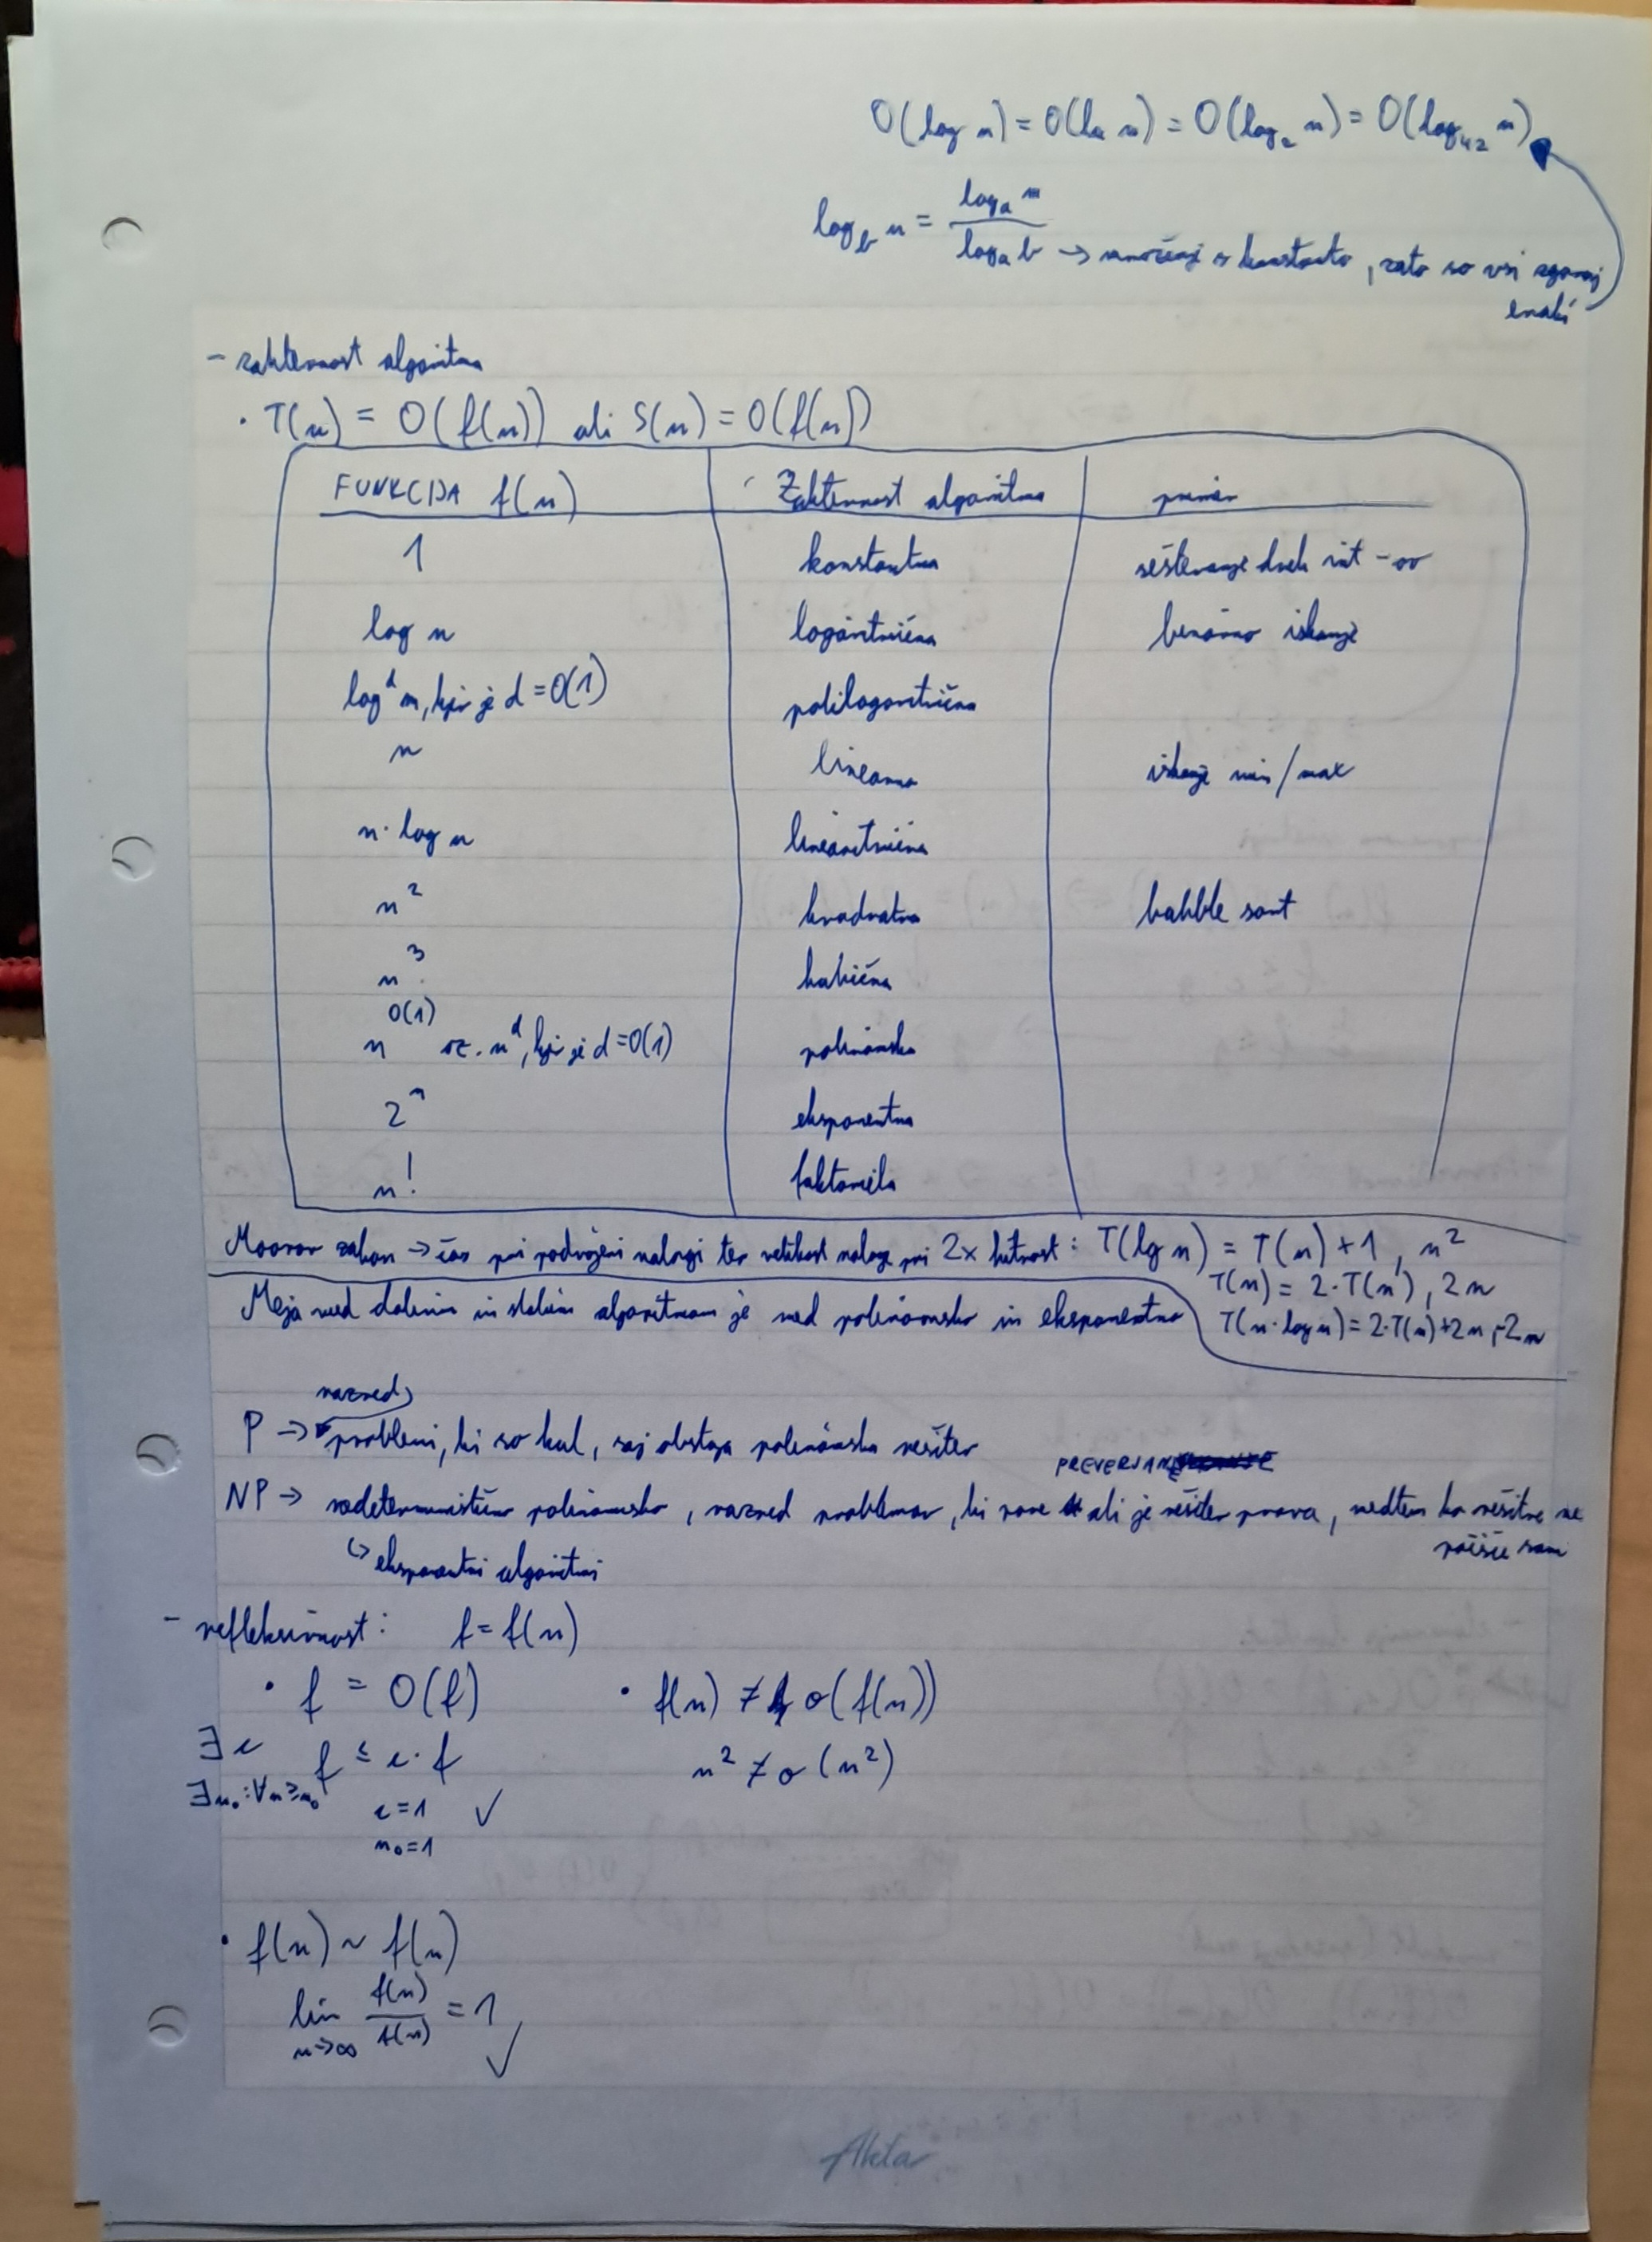 O(log n) = O(ln n) = O(log₂ n) = O(log₄₂ n)
log_b n = log_a n / log_a b → množenje s konstanto, zato so vsi zgoraj
enaki
- zahtevnost algoritma
• T(n) = O(f(n)) ali S(n) = O(f(n))
FUNKCIJA f(n) Zahtevnost algoritma primer
1 konstantna seštevanje dveh int-ov
log n logaritmična binarno iskanje
log^d n, kjer je d = O(1) polilogaritmična
n linearna iskanje min/max
n · log n linearitmična
n² kvadratna bubble sort
n³ kubična
n^O(1) oz. n^d, kjer je d = O(1) polinomska
2^n eksponentna
n! faktoriela
Moorov zakon → čas pri podvojeni nalogi ter velikost naloge pri 2x hitrost: T(lg n) = T(n) + 1, n²
T(n) = 2·T(n), 2n
T(n·log n) = 2·T(n) + 2n, ~2n
Meja med dobrim in slabim algoritmom je med polinomsko in eksponentno
razred
P → problemi, ki so kul, saj obstaja polinomska rešitev
PREVERJANJE
NP → nedeterministično polinomsko, razred problemov, ki pove ali je rešitev prava, medtem ko rešitve ne
poišče sam
↳ eksponentni algoritmi
- refleksivnost: f = f(n)
• f = O(f) • f(n) ≠ o(f(n))
∃c f ≤ c·f n² ≠ o(n²)
∃n₀: ∀n ≥ n₀
c = 1 ✓
n₀ = 1
• f(n) ~ f(n)
lim n→∞ f(n)/f(n) = 1 ✓
Akta